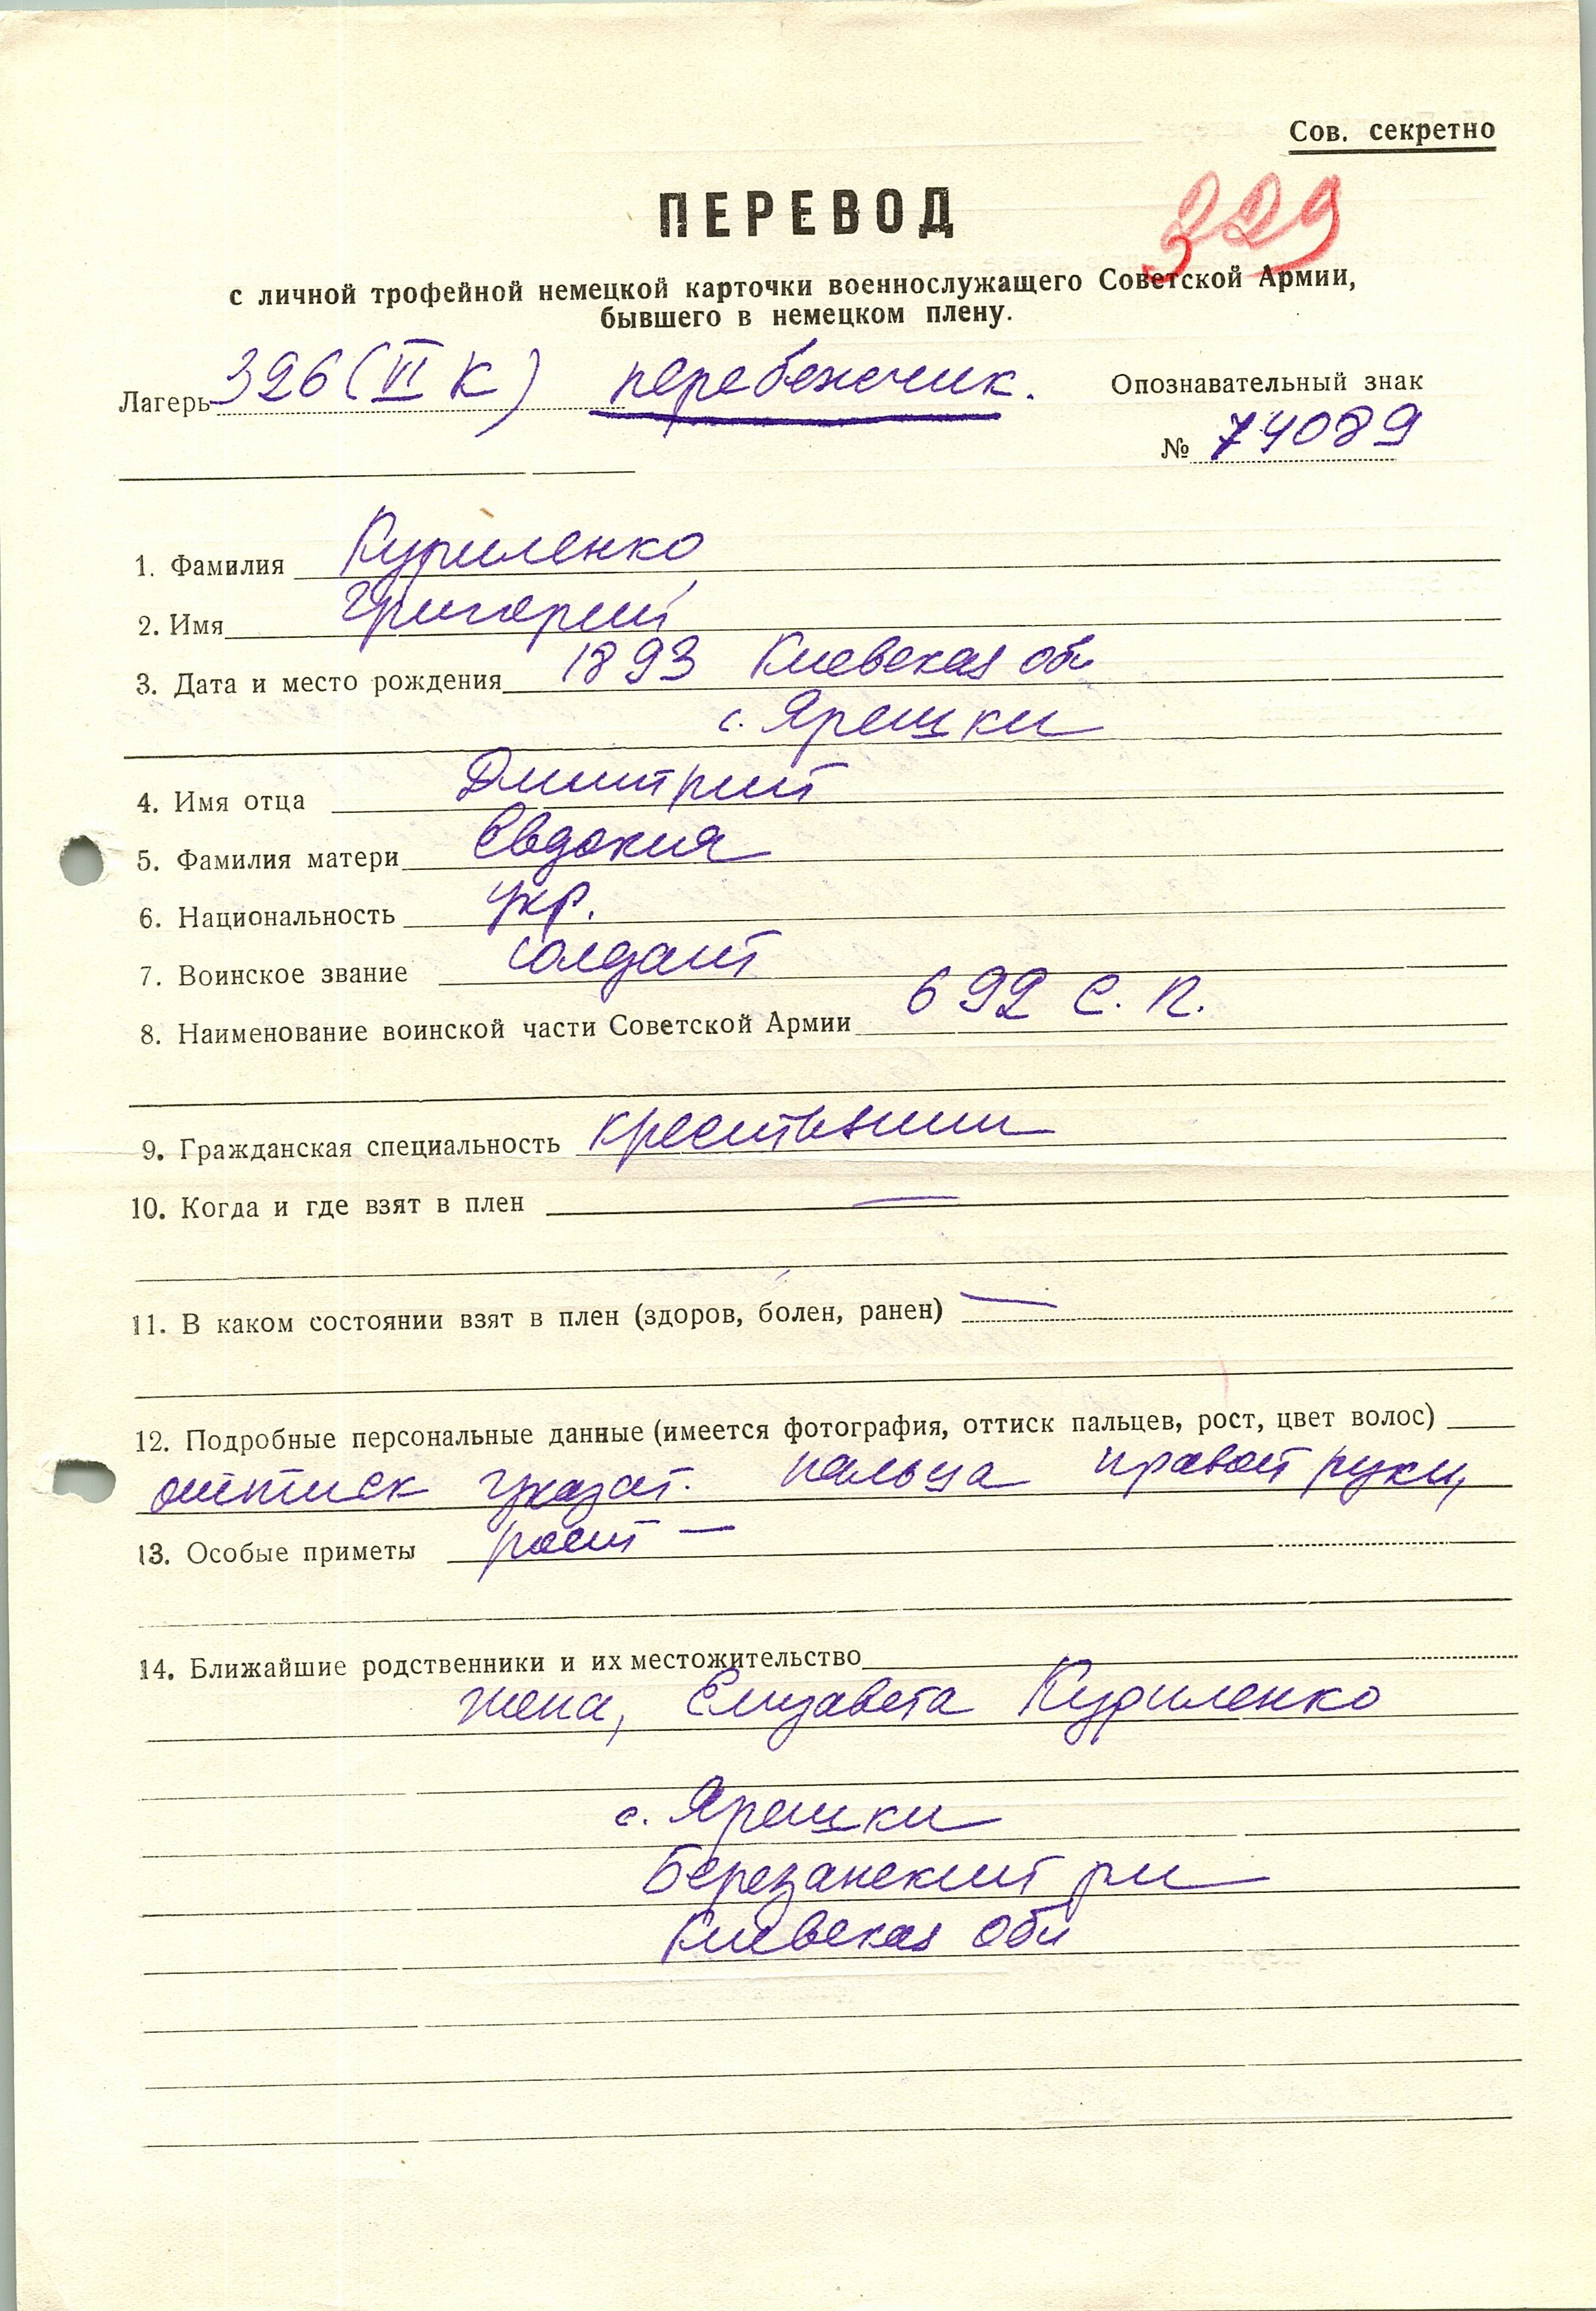 Сов. секретно
ПЕРЕВОД
329
с личной трофейной немецкой карточки военнослужащего Советской Армии,
бывшего в немецком плену.
Лагерь 326 (VI К) перебежчик. Опознавательный знак
№ 74089
1. Фамилия Куриленко
2. Имя Григорий
3. Дата и место рождения 1893 Киевская обл
с. Ярешки
4. Имя отца Дмитрий
5. Фамилия матери Евдокия
6. Национальность укр.
7. Воинское звание солдат
8. Наименование воинской части Советской Армии 692 с. п.
9. Гражданская специальность крестьянин
10. Когда и где взят в плен —
11. В каком состоянии взят в плен (здоров, болен, ранен) —
12. Подробные персональные данные (имеется фотография, оттиск пальцев, рост, цвет волос)
оттиск указат. пальца правой руки,
13. Особые приметы рост —
14. Ближайшие родственники и их местожительство
жена, Елизавета Куриленко
с. Ярешки
Березанский рн
Киевская обл